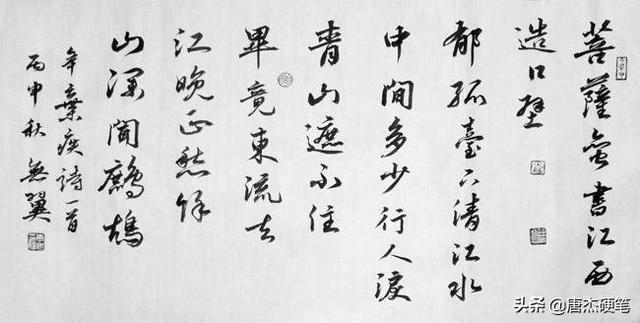 菩薩蛮書江西
造口壁
郁孤臺下清江水
中間多少行人淚
青山遮不住
畢竟東流去
江晚正愁餘
山深聞鷓鴣
辛棄疾詩一首
丙申秋無翼
头条 @唐杰硬笔